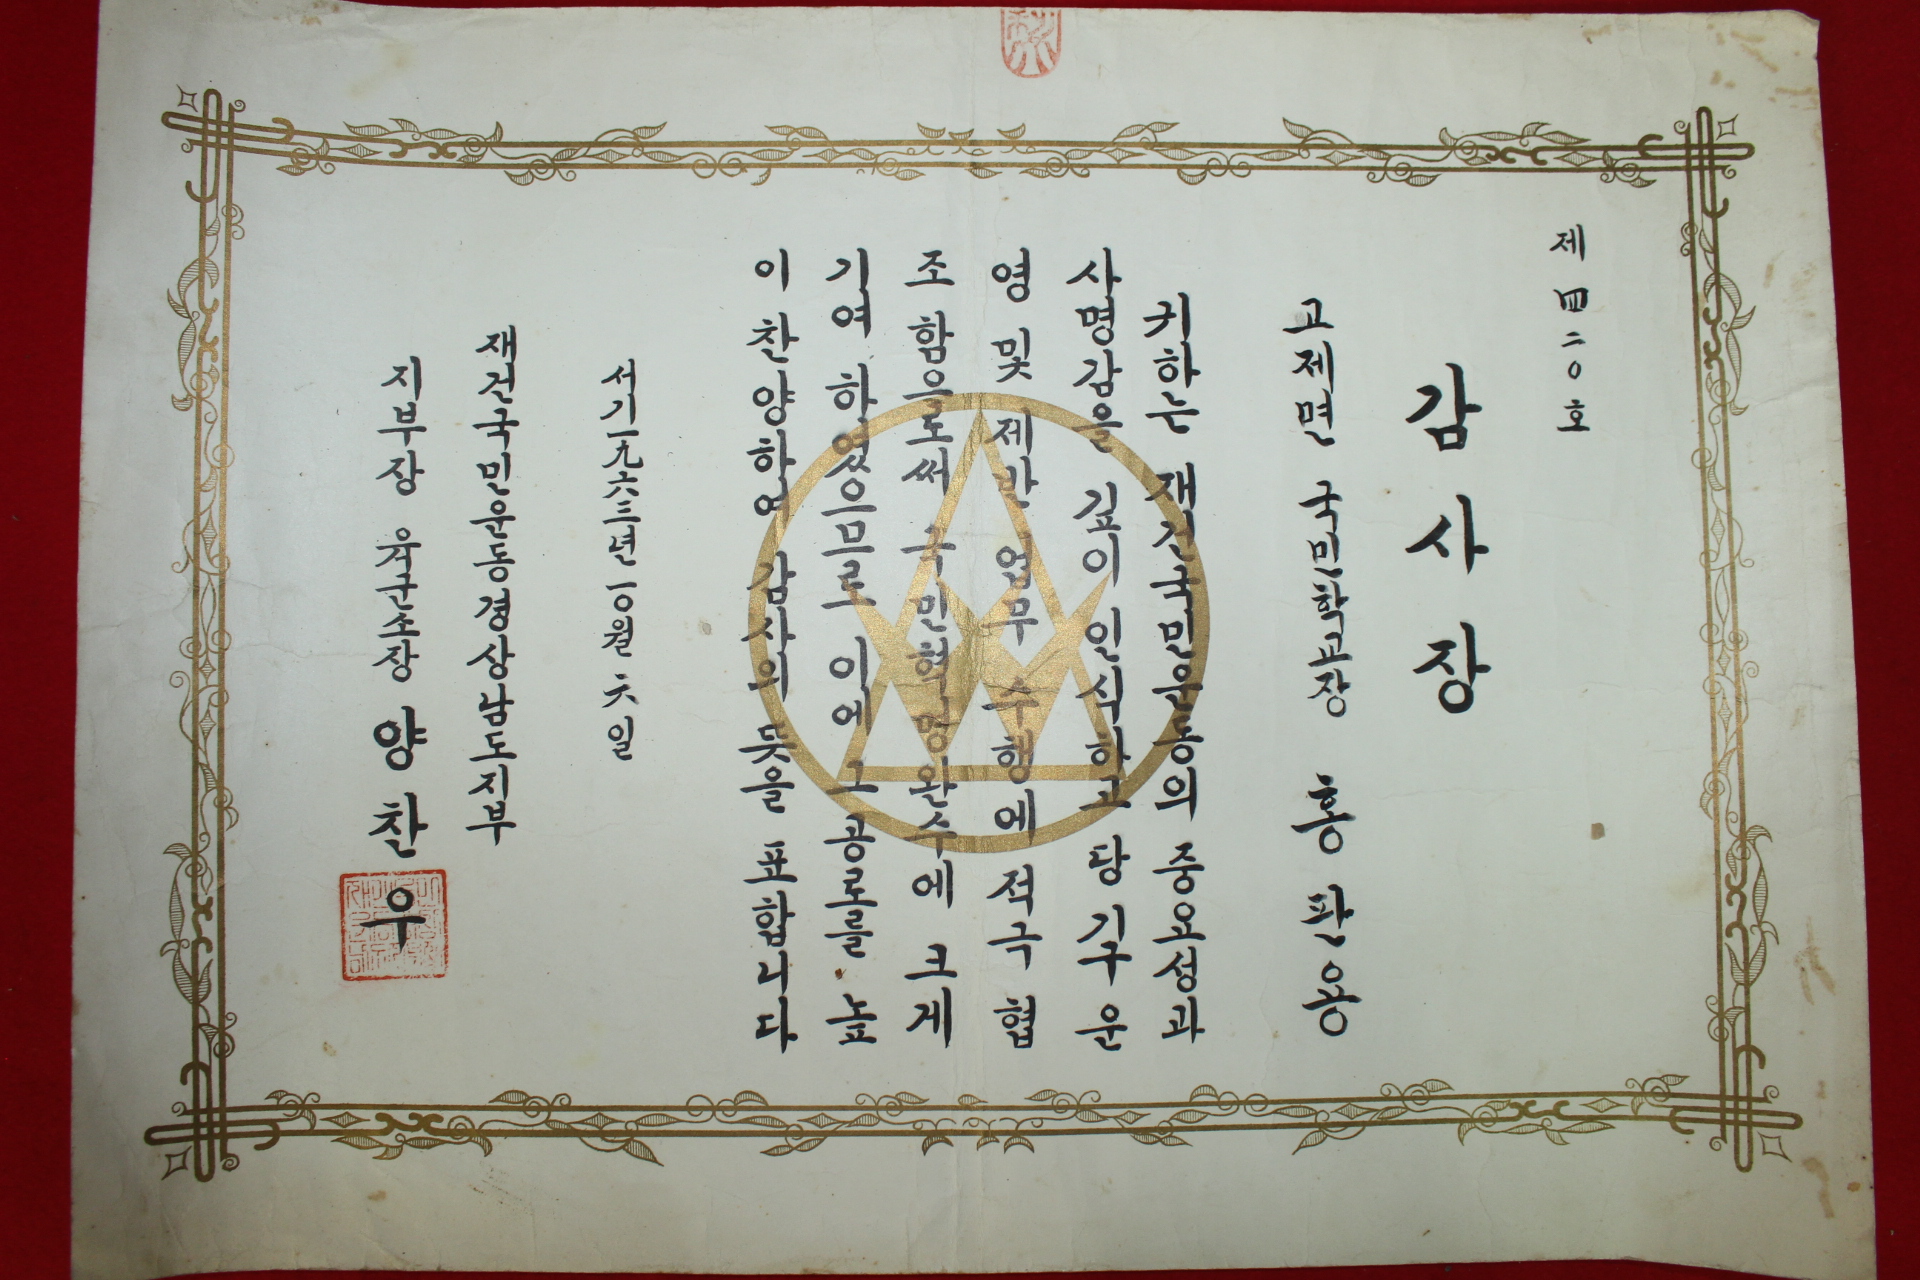 제 四二〇호
감사장
고제면 국민학교장 홍판용
귀하는 재건국민운동의 중요성과
사명감을 깊이 인식하고 당 기구 운
영 및 제반 업무 수행에 적극 협
조 함으로써 국민혁명완수에 크게
기여 하였으므로 이에 그 공로를 높
이 찬양하여 감사의 뜻을 표합니다
서기一九六三년 一〇월 六일
재건국민운동경상남도지부
지부장 육군소장 양찬우